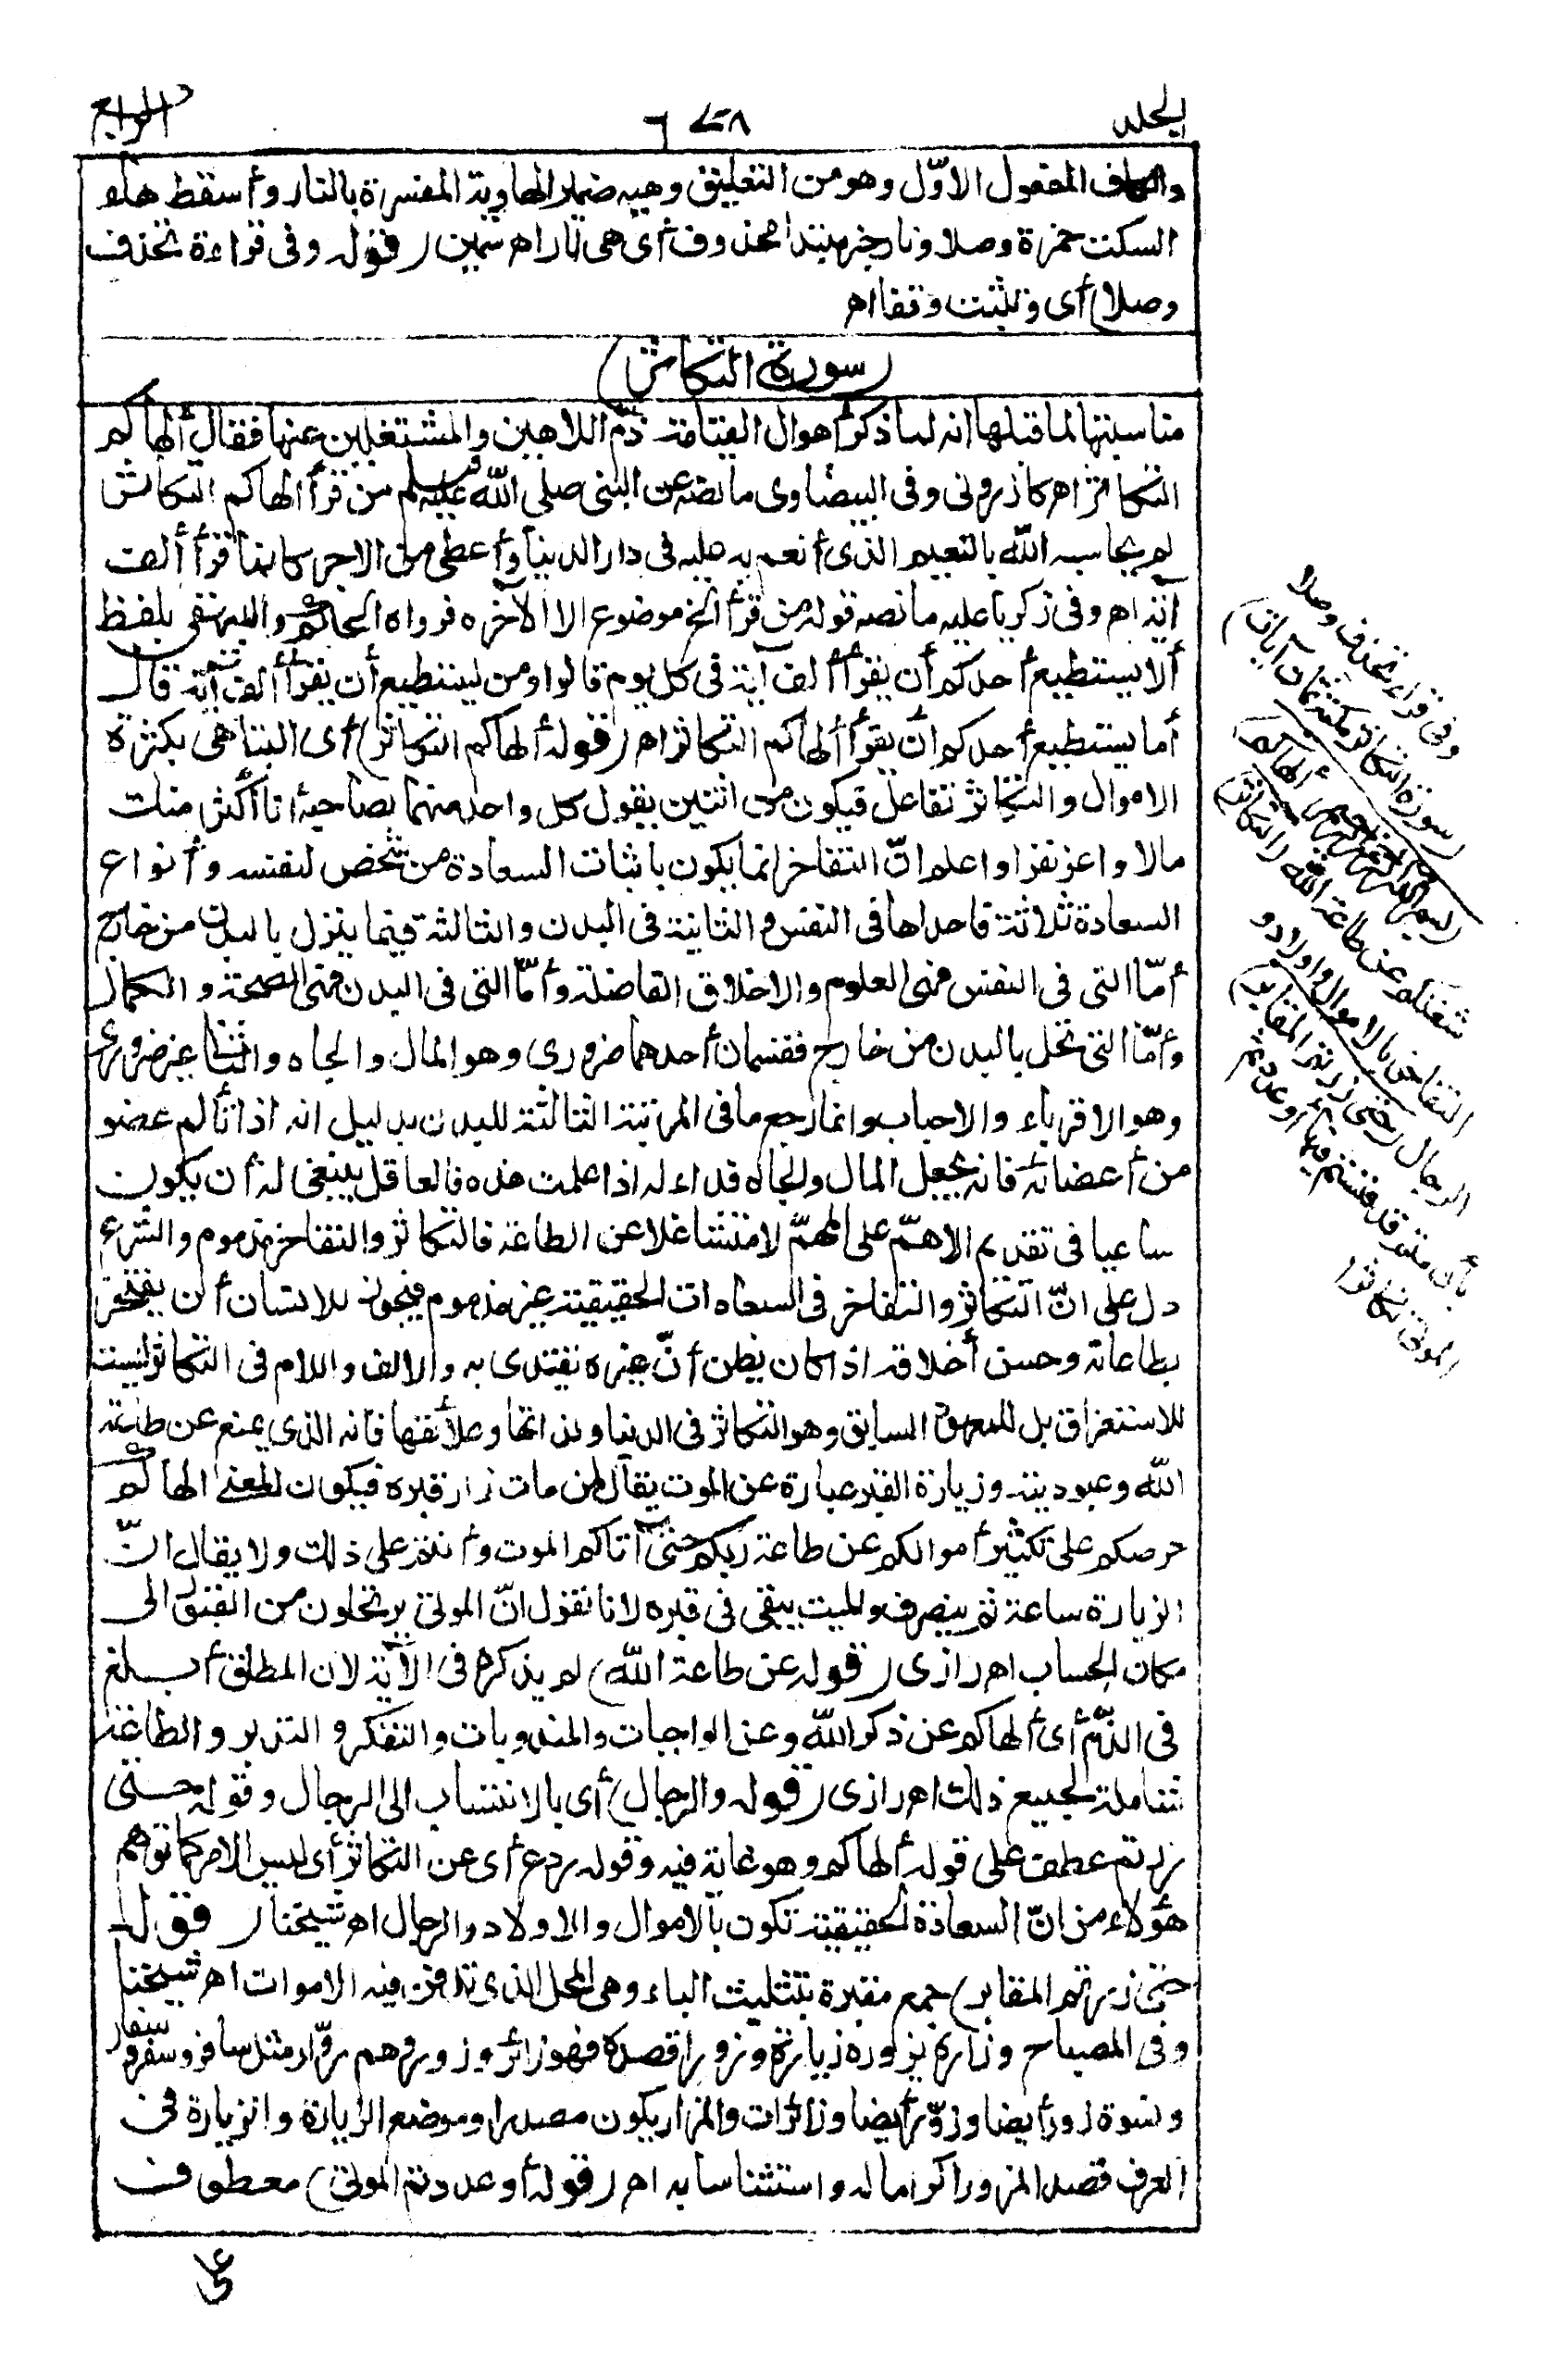 الجلد
٦٧٨
الرابع
والكاف المفعول الاوّل وهو من التعليق وهيه ضمير الهاوية المفسرة بالنار وأسقط هاء
السكت حمزة وصلا ونار خبر مبتدا محذوف أى هى نار اهر سمين (قوله وفى قراءة تحذف
وصلا) أى وتثبت وقفا اهر
(سورة التكاثر)
مناسبتها لما قبلها انه لما ذكر أهوال القيامة ذمّ اللاهين والمشتغلين عنها فقال ألهاكم
التكاثر اهر كازرونى وفى البيضاوى ما نصه عن النبى صلى اللّه عليه وسلم من قرأ الهاكم التكاثر
لم يحاسبه اللّه بالنعيم الذى أنعم به عليه فى دار الدنيا وأعطى من الاجر كانما قرأ ألف
آية اهر وفى زكريا عليه ما نصه قوله من قرأ الخ موضوع الا الآخره فرواه الحاكم والبيهقى بلفظ
ألا يستطيع أحدكم أن يقرأ ألف آية فى كل يوم قالوا ومن يستطيع أن يقرأ ألف آية قال
أما يستطيع أحدكم أن يقرأ ألهاكم التكاثر اهر (قوله ألهاكم التكاثر) أى التباهى بكثرة
الاموال والتكاثر تفاعل فيكون من اثنين يقول كل واحد منهما لصاحبه أنا أكثر منك
مالا واعز نفرا واعلم انّ التفاخر انما يكون باثبات السعادة من شخص لنفسه وأنواع
السعادة ثلاثة فاحداها فى النفس والثانية فى البدن والثالثة فيما ينزل بالبدن من خارج
أمّا التى فى النفس فهى العلوم والاخلاق الفاضلة وأمّا التى فى البدن فهى الصحة والكمال
وأمّا التى تحل بالبدن من خارج فقسمان أحدهما ضرورى وهو المال والجاه والثانى غير ضرورى
وهو الاقرباء والاحباب وانما رجع ما فى المرتبة الثالثة للبدن بدليل انه اذا تألم عضو
من أعضائه فانه يجعل المال والجاه فداء له اذا علمت هذه فالعاقل ينبغى له أن يكون
ساعيا فى تقديم الاهمّ على المهمّ لا متشاغلا عن الطاعة فالتكاثر والتفاخر مذموم والشرع
دل على انّ التكاثر والتفاخر فى السعادات الحقيقية غير مذموم فيجوز للانسان أن يفتخر
بطاعاته وحسن أخلاقه اذا كان يظن أنّ غيره يقتدى به والالف واللام فى التكاثر ليست
للاستغراق بل للمعهود السابق وهو التكاثر فى الدنيا ولذاتها وعلائقها فانه الذى يمنع عن طاعة
اللّه وعبوديته وزيارة القبر عبارة عن الموت يقال لمن مات زار قبره فيكون المعنى الهاكم
حرصكم على تكثير أموالكم عن طاعة ربكم حتى أتاكم الموت وأنتم على ذلك ولا يقال انّ
الزيارة ساعة ثم ينصرف والميت يبقى فى قبره لانا نقول انّ الموتى يرتحلون من القبور الى
مكان الحساب اهر رازى (قوله عن طاعة اللّه) لم يذكره فى الآية لان المطلق أبلغ
فى الذّم أى ألهاكم عن ذكر اللّه وعن الواجبات والمندوبات والتفكر والتدبر والطاعة
شاملة لجميع ذلك اهر رازى (قوله والرجال) أى بالانتساب الى الرجال وقوله حتى
زرتم عطف على قوله ألهاكم وهو غاية فيه وقوله ردع أى عن التكاثر أى ليس الامر كما توهم
هؤلاء من انّ السعادة الحقيقية تكون بالاموال والاولاد والرجال اهر شيخنا (قوله
حتى زرتم المقابر) جمع مقبرة بتثليث الباء وهى المحل الذى تدفن فيه الاموات اهر شيخنا
وفى المصباح وزاره يزوره زيارة وزورا قصده فهو زائر وزور وهم زوّار مثل سافر وسفر وسفار
ونسوة زور أيضا وزوّر أيضا وزائرات والمزار يكون مصدرا وموضع الزيارة والزيارة فى
العرف قصد المزور اكراما له واستئناسا به اهر (قوله أو عددتم الموتى) معطوف
على
وفى قراءة تحذف وصلا
(سورة التكاثر مكية ثمان آيات)
(بسم اللّه الرحمن الرحيم ألهاكم)
شغلكم عن طاعة اللّه (التكاثر)
التفاخر بالاموال والاولاد و
الرجال (حتى زرتم المقابر)
بأن متم فدفنتم فيها أو عددتم
الموتى تكاثرا